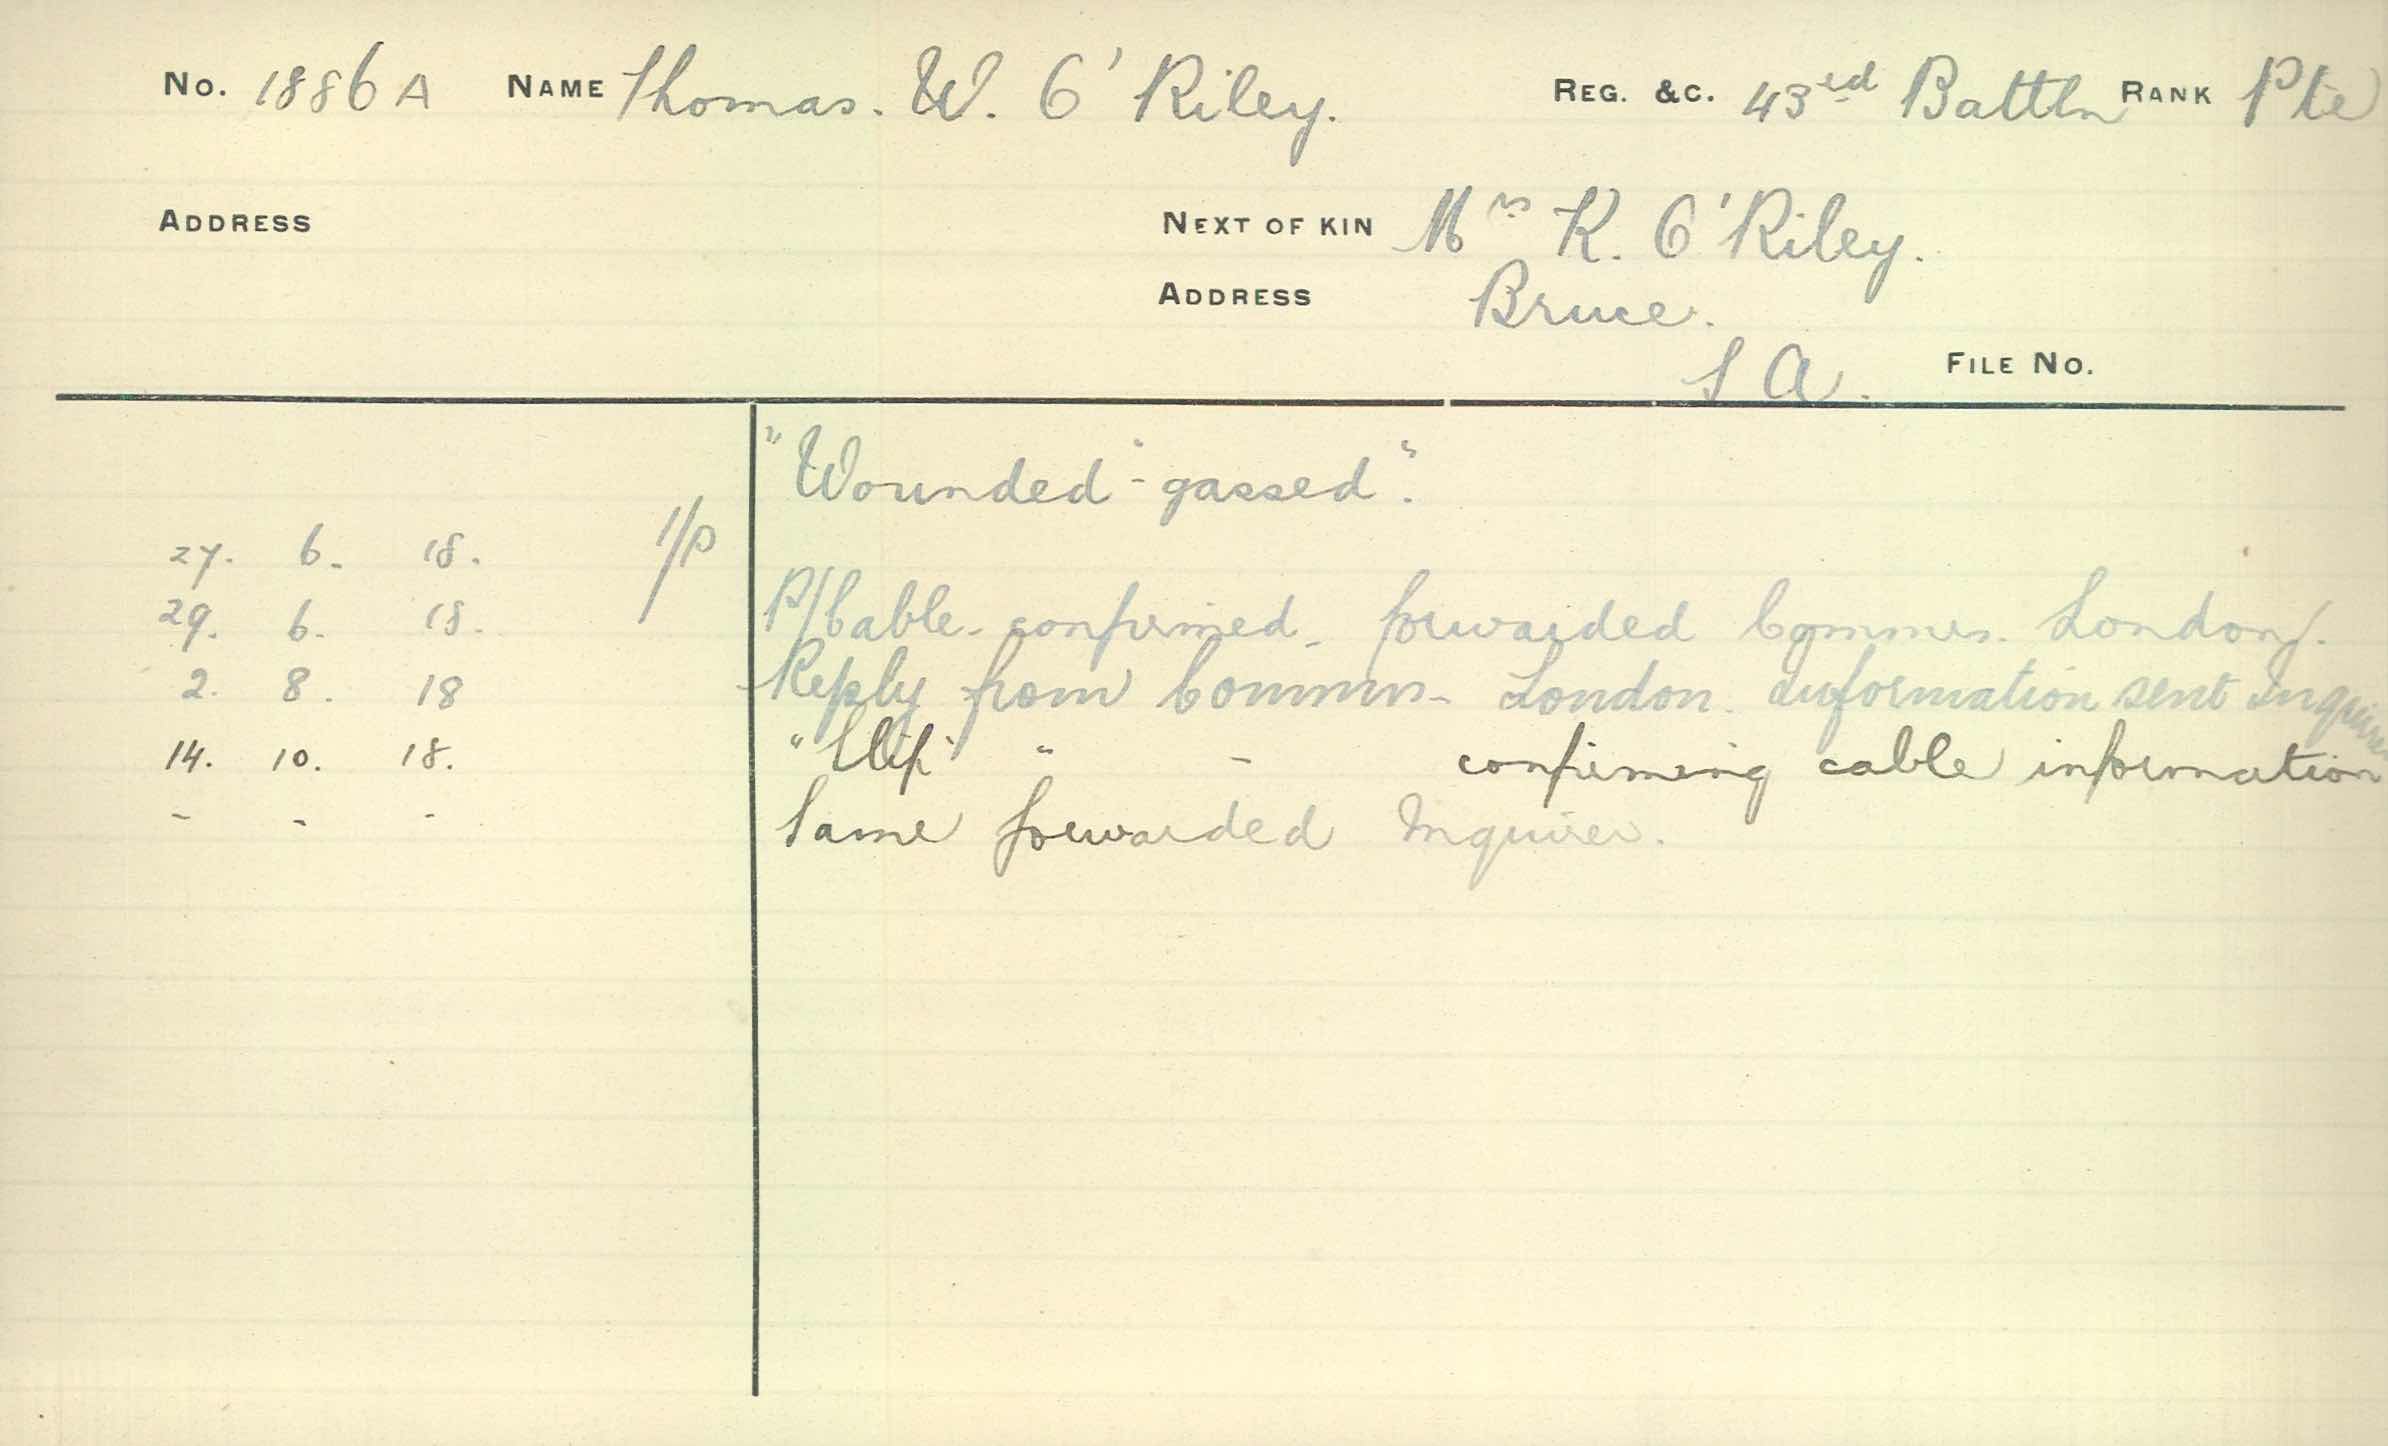 No. 1886 A NAME Thomas. W. O'Riley. REG. &C. 43rd Battln RANK Pte
ADDRESS NEXT OF KIN Mrs K. O'Riley.
ADDRESS Bruce.
S A. FILE NO.
"Wounded"-gassed".
27. 6. 18.
29. 6. 18. P/Cable. confirmed. forwarded Commn. London.
2. 8. 18 Reply from Commn. London. Information sent Inquirer
14. 10. 18. "Slip" " - confirming cable information
- - - Same forwarded Inquirer.